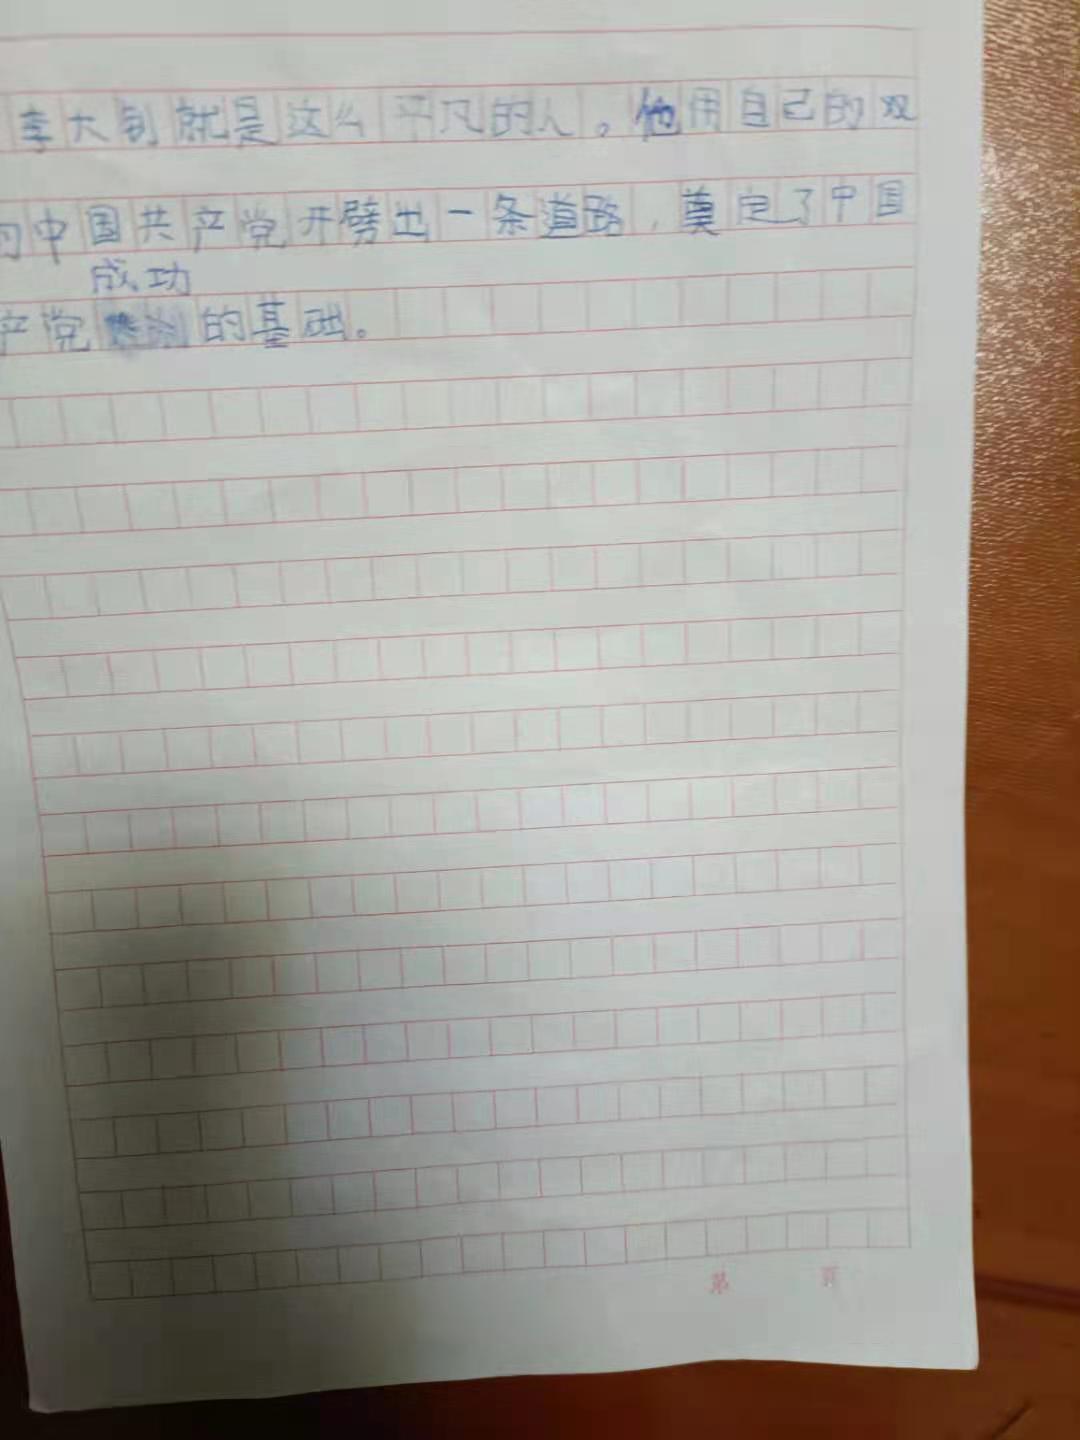 李大钊就是这么平凡的人。他用自己的双
的中国共产党开劈出一条道路，奠定了中国
成功
产党的基础。
第 页